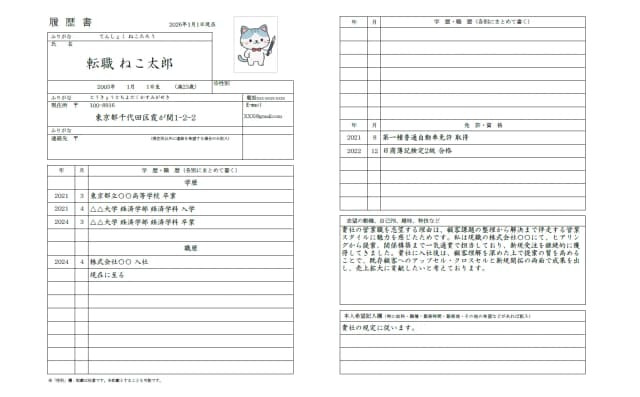 履 歴 書
2026年1月1日現在
ふりがな てんしょく ねこたろう
氏 名
転職 ねこ太郎
2003年 1月 1日生 (満23歳)
※性別
ふりがな とうきょうとちよだくかすみがせき
現住所 〒 100-8916
東京都千代田区霞が関1-2-2
電話xxx-xxxx-xxxx
E-mail
XXX@gmail.com
ふりがな
連絡先 〒 (現住所以外に連絡を希望する場合のみ記入)
年 月 学 歴・職 歴 (各別にまとめて書く)
学歴
2021 3 東京都立〇〇高等学校 卒業
2021 4 △△大学 経済学部 経済学科 入学
2024 3 △△大学 経済学部 経済学科 卒業
職歴
2024 4 株式会社〇〇 入社
現在に至る
※「性別」欄：記載は任意です。未記載とすることも可能です。
年 月 学 歴・職 歴 (各別にまとめて書く)
年 月 免 許・資 格
2021 8 第一種普通自動車免許 取得
2022 12 日商簿記検定2級 合格
志望の動機、自己PR、趣味、特技など
貴社の営業職を志望する理由は、顧客課題の整理から解決まで伴走する営業
スタイルに魅力を感じたためです。私は現職の株式会社〇〇にて、ヒアリン
グから提案、関係構築まで一気通貫で担当しており、新規受注を継続的に獲
得してきました。貴社に入社後は、顧客理解を深めた上で提案の質を高める
ことで、既存顧客へのアップセル・クロスセルと新規開拓の両面で成果を出
し、売上拡大に貢献したいと考えております。
本人希望記入欄 (特に給料・職種・勤務時間・勤務地・その他の希望などがあれば記入)
貴社の規定に従います。